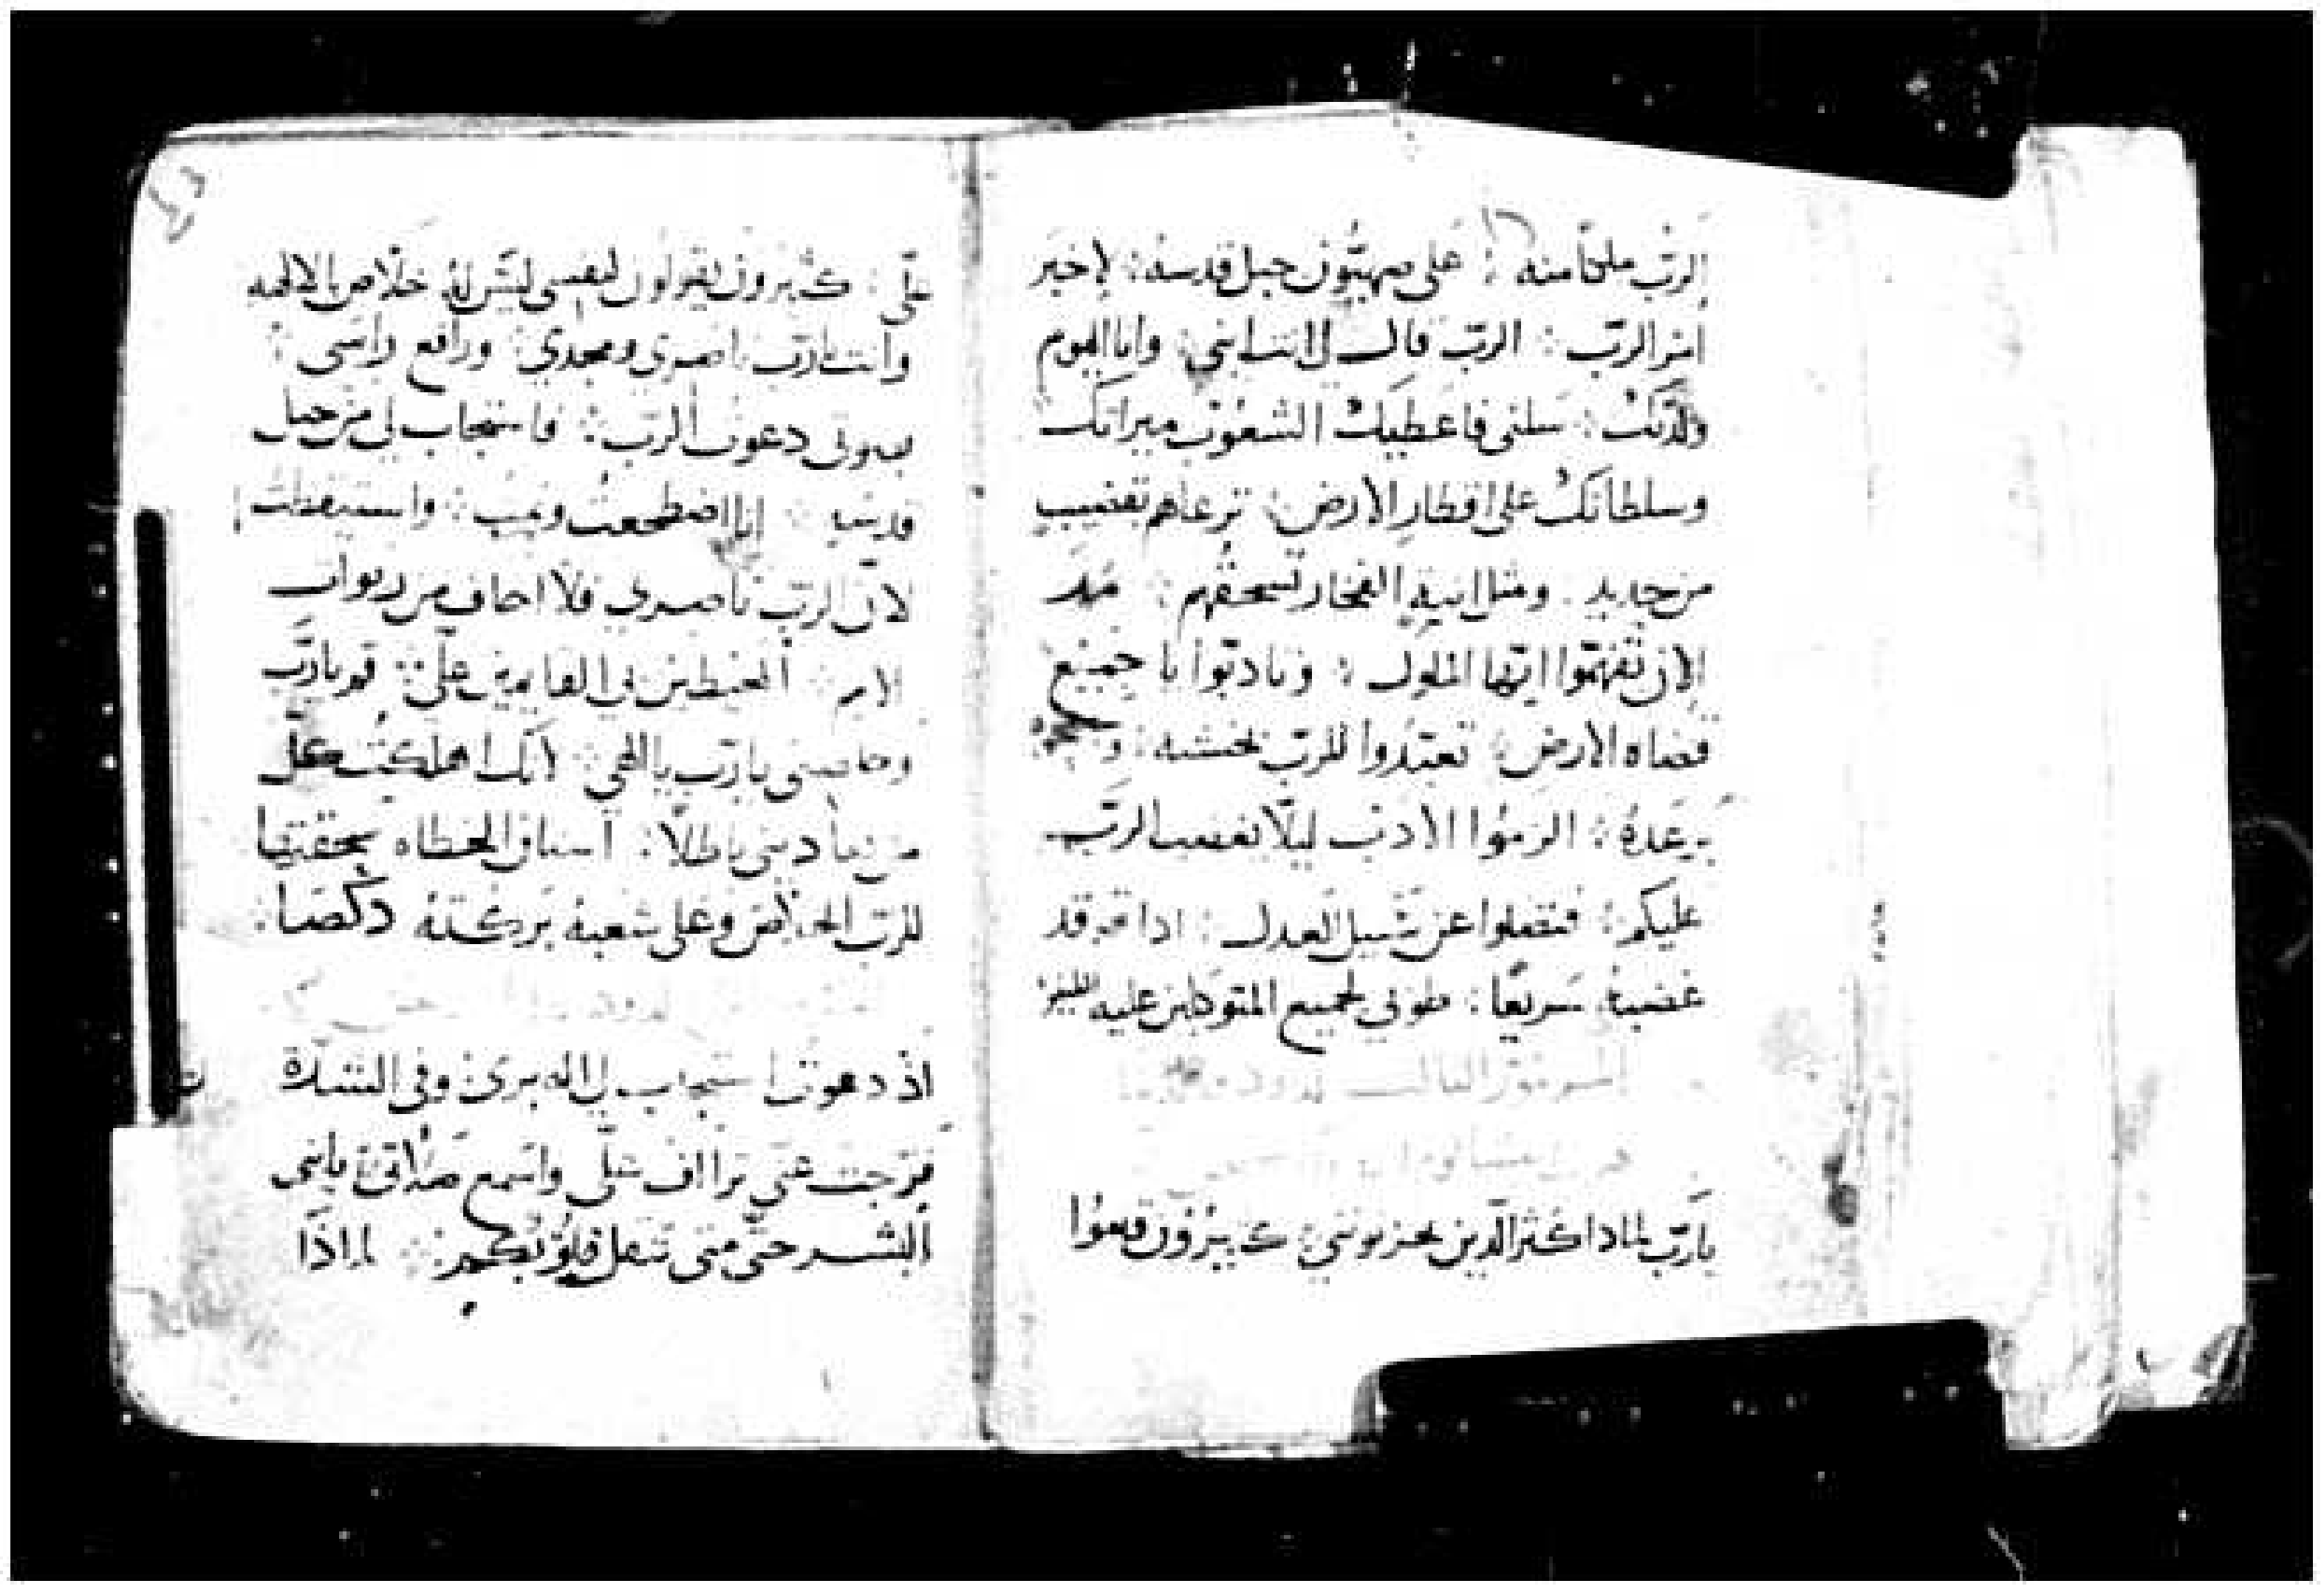 الرّب ملكاً منه ؛ على صهيّون جبل قدسه ؛ لاخبر
امر الرّب ؛ الرّب قال لى انت ابني ؛ وانا اليوم
ولدّتك ؛ سلني فاعطيك الشعوب ميراثك
وسلطانك على اقطار الارض ؛ ترعاهم بقضيب
من حديد . ومثل انية الفخار تسحقهم ؛
الان تفهّموا ايّها الملوك ؛ وتادّبوا يا جميع
قضاه الارض ؛ تعبّدوا للرّب بخشيه ؛
برعدة ؛ الزموا الادب ليلّا يغضب الرّب
عليكم ؛ فتضلوا عن سبيل العدل ؛ اذا توقد
غضبة سريعًا ؛ طوبى لجميع المتوكلين عليه
المزمور الثالث لداود
يا ربّ لماذا كثر الّذين يحزنونني ؛ كثيرون قاموا
علّى ؛ كثيرون يقولون لنفسى ليس له خلاص بالاهه
وانت يا ربّ ناصري ومجدي ؛ ورافع راسى ؛
بصوتى دعوت الرّب ؛ فاستجاب لى من جبل
قدسه ؛ انا اضطجعت ونمت ؛ واستيقظت
لانّ الرّب ناصري فلا اخاف من ربوات
الامم ؛ المحيطين بي القايمين علّى ؛ قم يا ربّ
وخلصنى يا ربّ يا الهي ؛ انّك اهلكت كل
من يعادينى باطلًا ؛ اسنان الخطاه سحقتها
للرّب الخلاص وعلى شعبه بركته
اذ دعوت استجاب لى اله برى ؛ وفى الشدّة
فرّجت عنى تراأف علّى واسمع صلاتى ؛ يا بني
البشر حتّى متى تثقل قلوبكم ؛ لماذا